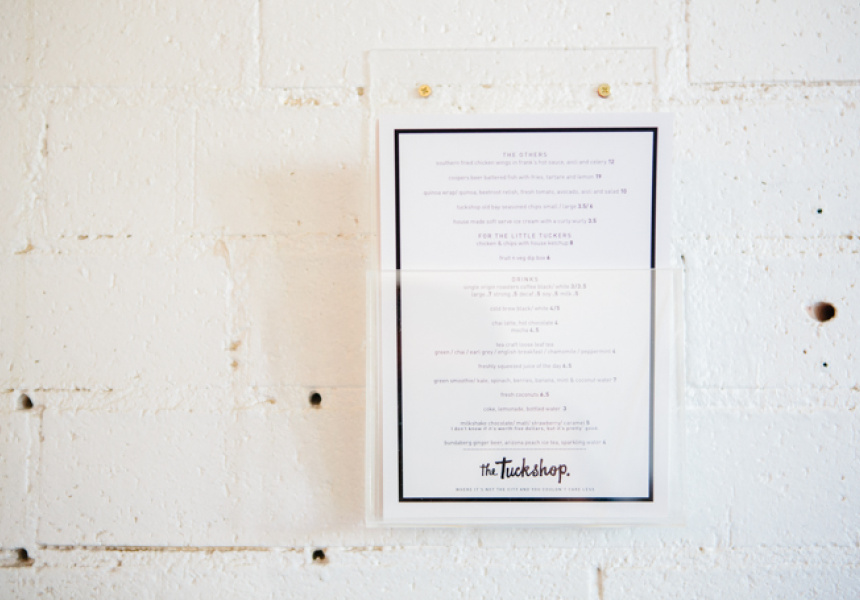 THE OTHERS
southern fried chicken wings in frank's hot sauce, aioli and celery 12
coopers beer battered fish with fries, tartare and lemon 19
quinoa wrap: quinoa, beetroot relish, fresh tomato, avocado, aioli and salad 10
tuckshop old bay seasoned chips small / large 3.5/ 6
house made soft serve ice cream with a curly wurly 3.5
FOR THE LITTLE TUCKERS
chicken & chips with house ketchup 8
fruit n veg big box 6
DRINKS
single origin roasters coffee black/ white 3/3.5
large .7 strong .5 decaf .5 soy .5 milk .5
cold brew black/ white 4/5
chai latte, hot chocolate 4
mocha 4.5
tea craft loose leaf tea
green / chai / earl grey / english breakfast / chamomile / peppermint 4
freshly squeezed juice of the day 6.5
green smoothie/ kale, spinach, berries, banana, mint & coconut water 7
fresh coconuts 6.5
coke, lemonade, bottled water 3
milkshake chocolate/ malt/ strawberry/ caramel 5
I don't know if it's worth five dollars, but it's pretty good.
bundaberg ginger beer, arizona peach ice tea, sparkling water 4
the Tuckshop.
WHERE IT'S NOT THE CITY AND YOU COULDN'T CARE LESS